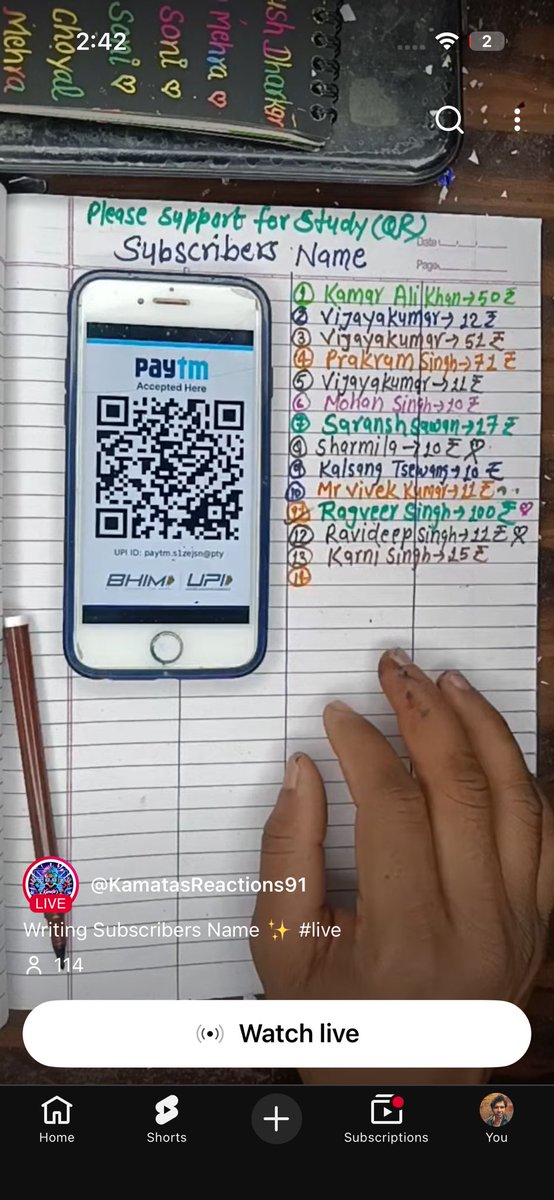 2:42
2
ush Dharkar
Mehra ♡
Soni ♡
Soni ♡
Choyal
Mehra
Please Support for Study (QR)
Subscribers Name
Date
Page
1 Kamar Ali Khan→50₹
2 Vijayakumar→12₹
3 Vijayakumar→51₹
4 Prakram Singh→71₹
5 Vijayakumar→11₹
6 Mohan Singh→10₹
7 Saransh Sawan→17₹
8 Sharmila→10₹
9 Kalsang Tsewang→10₹
10 Mr Vivek Kumar→11₹
11 Ragveer Singh→100₹ ♡
12 Ravideep Singh→11₹
13 Karni Singh→15₹
14
paytm
Accepted Here
UPI ID: paytm.s1zejsn@pty
BHIM UPI
LIVE
@KamatasReactions91
Writing Subscribers Name ✨ #live
114
Watch live
Home
Shorts
Subscriptions
You